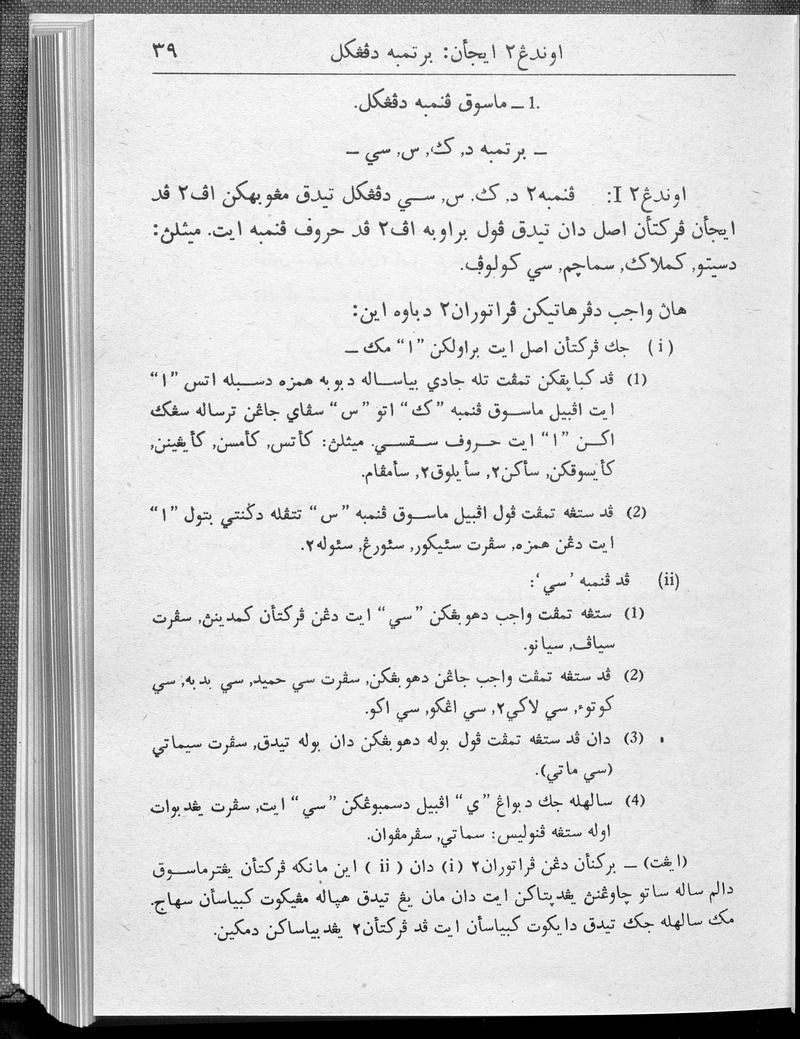 اوندڠ٢ ايجأن: برتمبه دڤڠکل ٣٩
1. ــ ماسوق ڤنمبه دڤڠکل.
ــ برتمبه د, ک, س, سي ــ
اوندڠ٢ I: ڤنمبه٢ د, ک. س, سي دڤڠکل تيدق مڠوبهکن اڤ٢ ڤد
ايجأن ڤرکتأن اصل دان تيدق ڤول براوبه اڤ٢ ڤد حروف ڤنمبه ايت. ميثلڽ:
دسيتو, کملاک, سماچم, سي کولوڤ.
هاڽ واجب دڤرهاتيکن ڤراتوران٢ دباوه اين:
(i) جک ڤرکتأن اصل ايت براولکن ”ا“ مک ــ
(1) ڤد کباڽقکن تمڤت تله جادي بياساله دبوبه همزه دسبله اتس ”ا“
ايت اڤبيل ماسوق ڤنمبه ”ک“ اتو ”س“ سڤاي جاڠن ترساله سڠک
اکن ”ا“ ايت حروف سقسي. ميثلڽ: کأتس, کأمسن, کأيڠينن,
کأيسوقکن, سأکن٢, سأيلوق٢, سأمڤام.
(2) ڤد ستڠه تمڤت ڤول اڤبيل ماسوق ڤنمبه ”س“ تتڤله دݢنتي بتول ”ا“
ايت دڠن همزه, سڤرت سئيکور, سئورڠ, سئوله٢.
(ii) ڤد ڤنمبه ’سي‘:
(1) ستڠه تمڤت واجب دهوبڠکن ”سي“ ايت دڠن ڤرکتأن کمدينڽ, سڤرت
سياڤ, سيانو.
(2) ڤد ستڠه تمڤت واجب جاڠن دهوبڠکن, سڤرت سي حميد, سي بدبه, سي
کوتوء, سي لاکي٢, سي اڠکو, سي اکو.
(3) دان ڤد ستڠه تمڤت ڤول بوله دهوبڠکن دان بوله تيدق, سڤرت سيماتي
(سي ماتي).
(4) سالهله جک دبواڠ ”ي“ اڤبيل دسمبوڠکن ”سي“ ايت, سڤرت يڠدبوات
اوله ستڠه ڤنوليس: سماتي, سڤرمڤوان.
(ايڠت) ــ برکنأن دڠن ڤراتوران٢ (i) دان (ii) اين مانکه ڤرکتأن يڠترماسوق
دالم ساله ساتو چاوڠنڽ يڠدڽتاکن ايت دان مان يڠ تيدق هڽاله مڠيکوت کبياسأن سهاج.
مک سالهله جک تيدق دايکوت کبياسأن ايت ڤد ڤرکتأن٢ يڠدبياساکن دمکين.